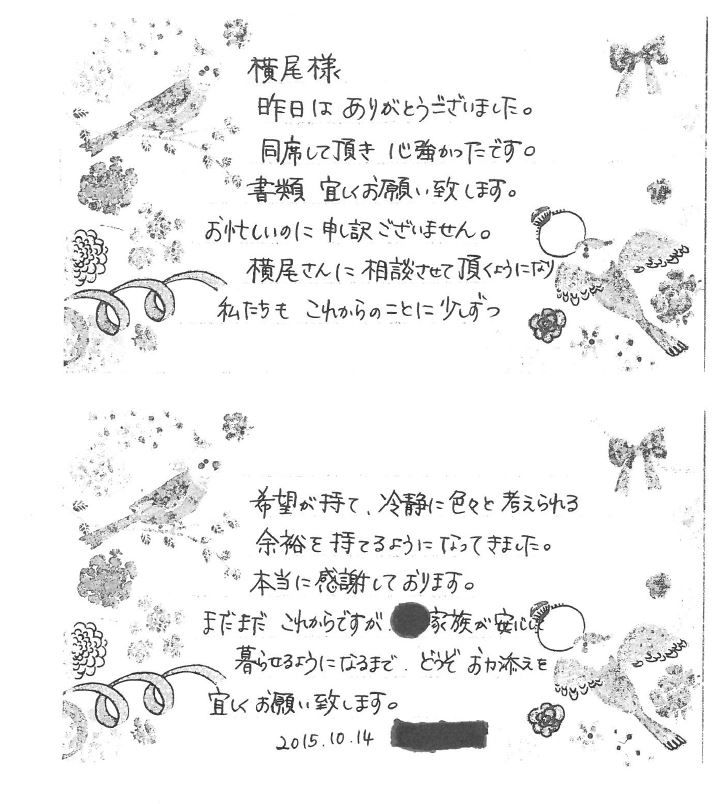 横尾様
昨日は ありがとうございました。
同席して頂き 心強かったです。
書類 宜しくお願い致します。
お忙しいのに 申し訳ございません。
横尾さんに 相談させて頂くようになり
私たちも これからのことに 少しずつ
希望が持て、冷静に色々と考えられる
余裕を持てるようになってきました。
本当に感謝しております。
まだまだ これからですが、家族が安心して
暮らせるようになるまで、どうぞお力添えを
宜しくお願い致します。
2015.10.14